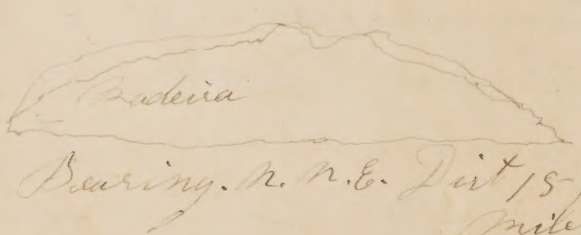 Madeira
Bearing. N. N. E. Dist 15
mile